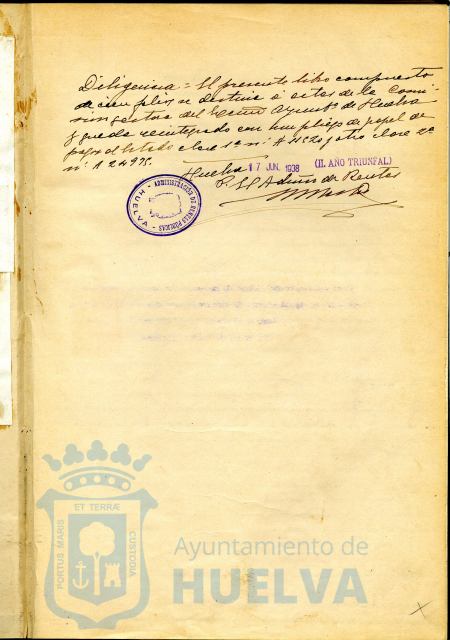 Diligencia = El presente libro compuesto
de cien pliegos se destina á actas de la Comi-
sión gestora del Excmo Ayunt.º de Huelva
y queda reintegrado con un pliego de papel de
pagos al Estado clase 1ª n.º A y otro clase 2ª
n.º A 24975.
Huelva 17 JUN. 1938 (II. AÑO TRIUNFAL)
P. El Admor de Rentas
ADMINISTRACIÓN DE RENTAS PÚBLICAS - HUELVA -
ET TERRÆ
PORTUS MARIS
CUSTODIA
Ayuntamiento de
HUELVA